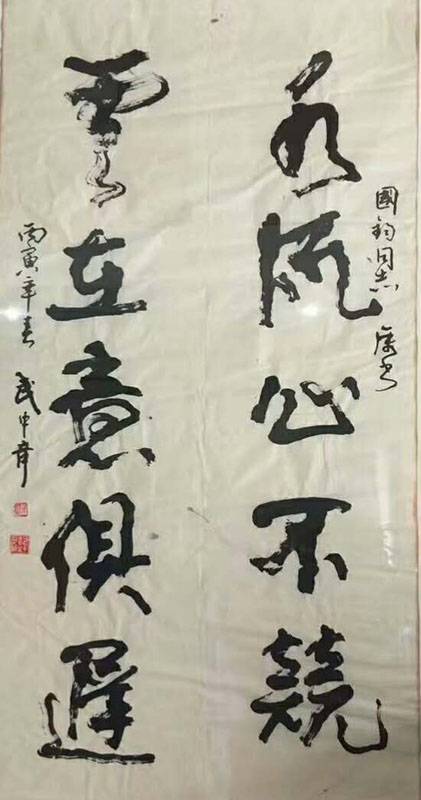 國鈞同志 属书
水流心不競
雲在意俱遲
丙寅年春 武中奇